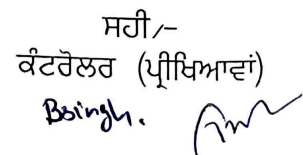 ਸਹੀ/-
ਕੰਟਰੋਲਰ (ਪ੍ਰੀਖਿਆਵਾਂ)
Bsingh.